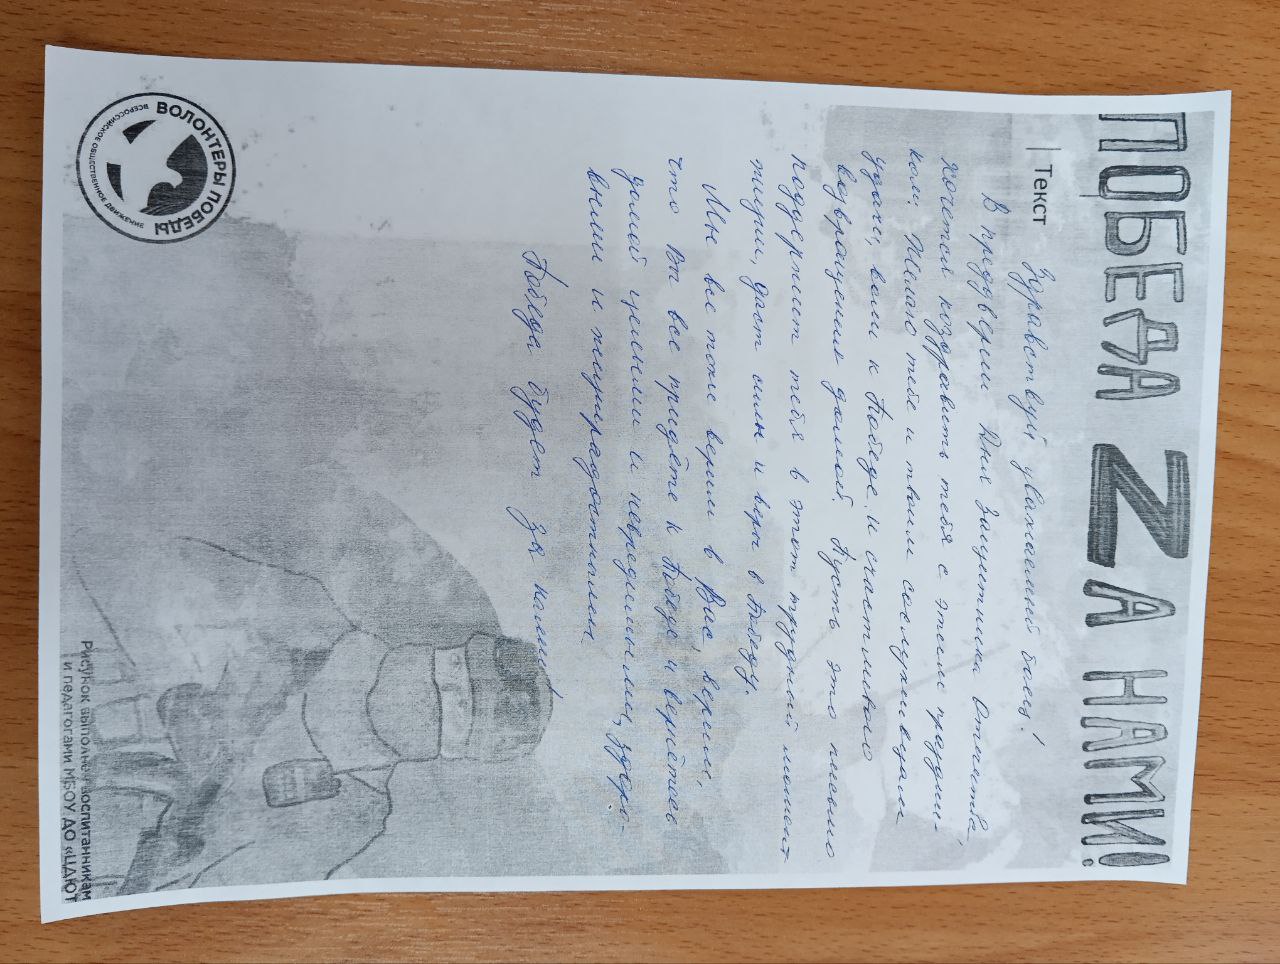 ПОБЕДА ZА НАМИ!
Текст
Здравствуй уважаемый боец!
В преддверии Дня Защитника Отечества,
хочется поздравить тебя с этим праздни-
ком. Желаю тебе и твоим сослуживцам
удачи, воли к Победе и счастливого
возвращения домой. Пусть это письмо
поддержит тебя в этот трудный момент
жизни, даст силы и веры в Победу.
Мы все тоже верим в Вас, верим,
что Вы все придёте к Победе и вернётесь
домой целыми и невредимыми, здоро-
выми и жизнерадостными.
Победа будет за нами!
ВОЛОНТЕРЫ ПОБЕДЫ
ВСЕРОССИЙСКОЕ ОБЩЕСТВЕННОЕ ДВИЖЕНИЕ
Рисунок выполнен воспитанникам
и педагогами МБОУ ДО «ЦДЮТ